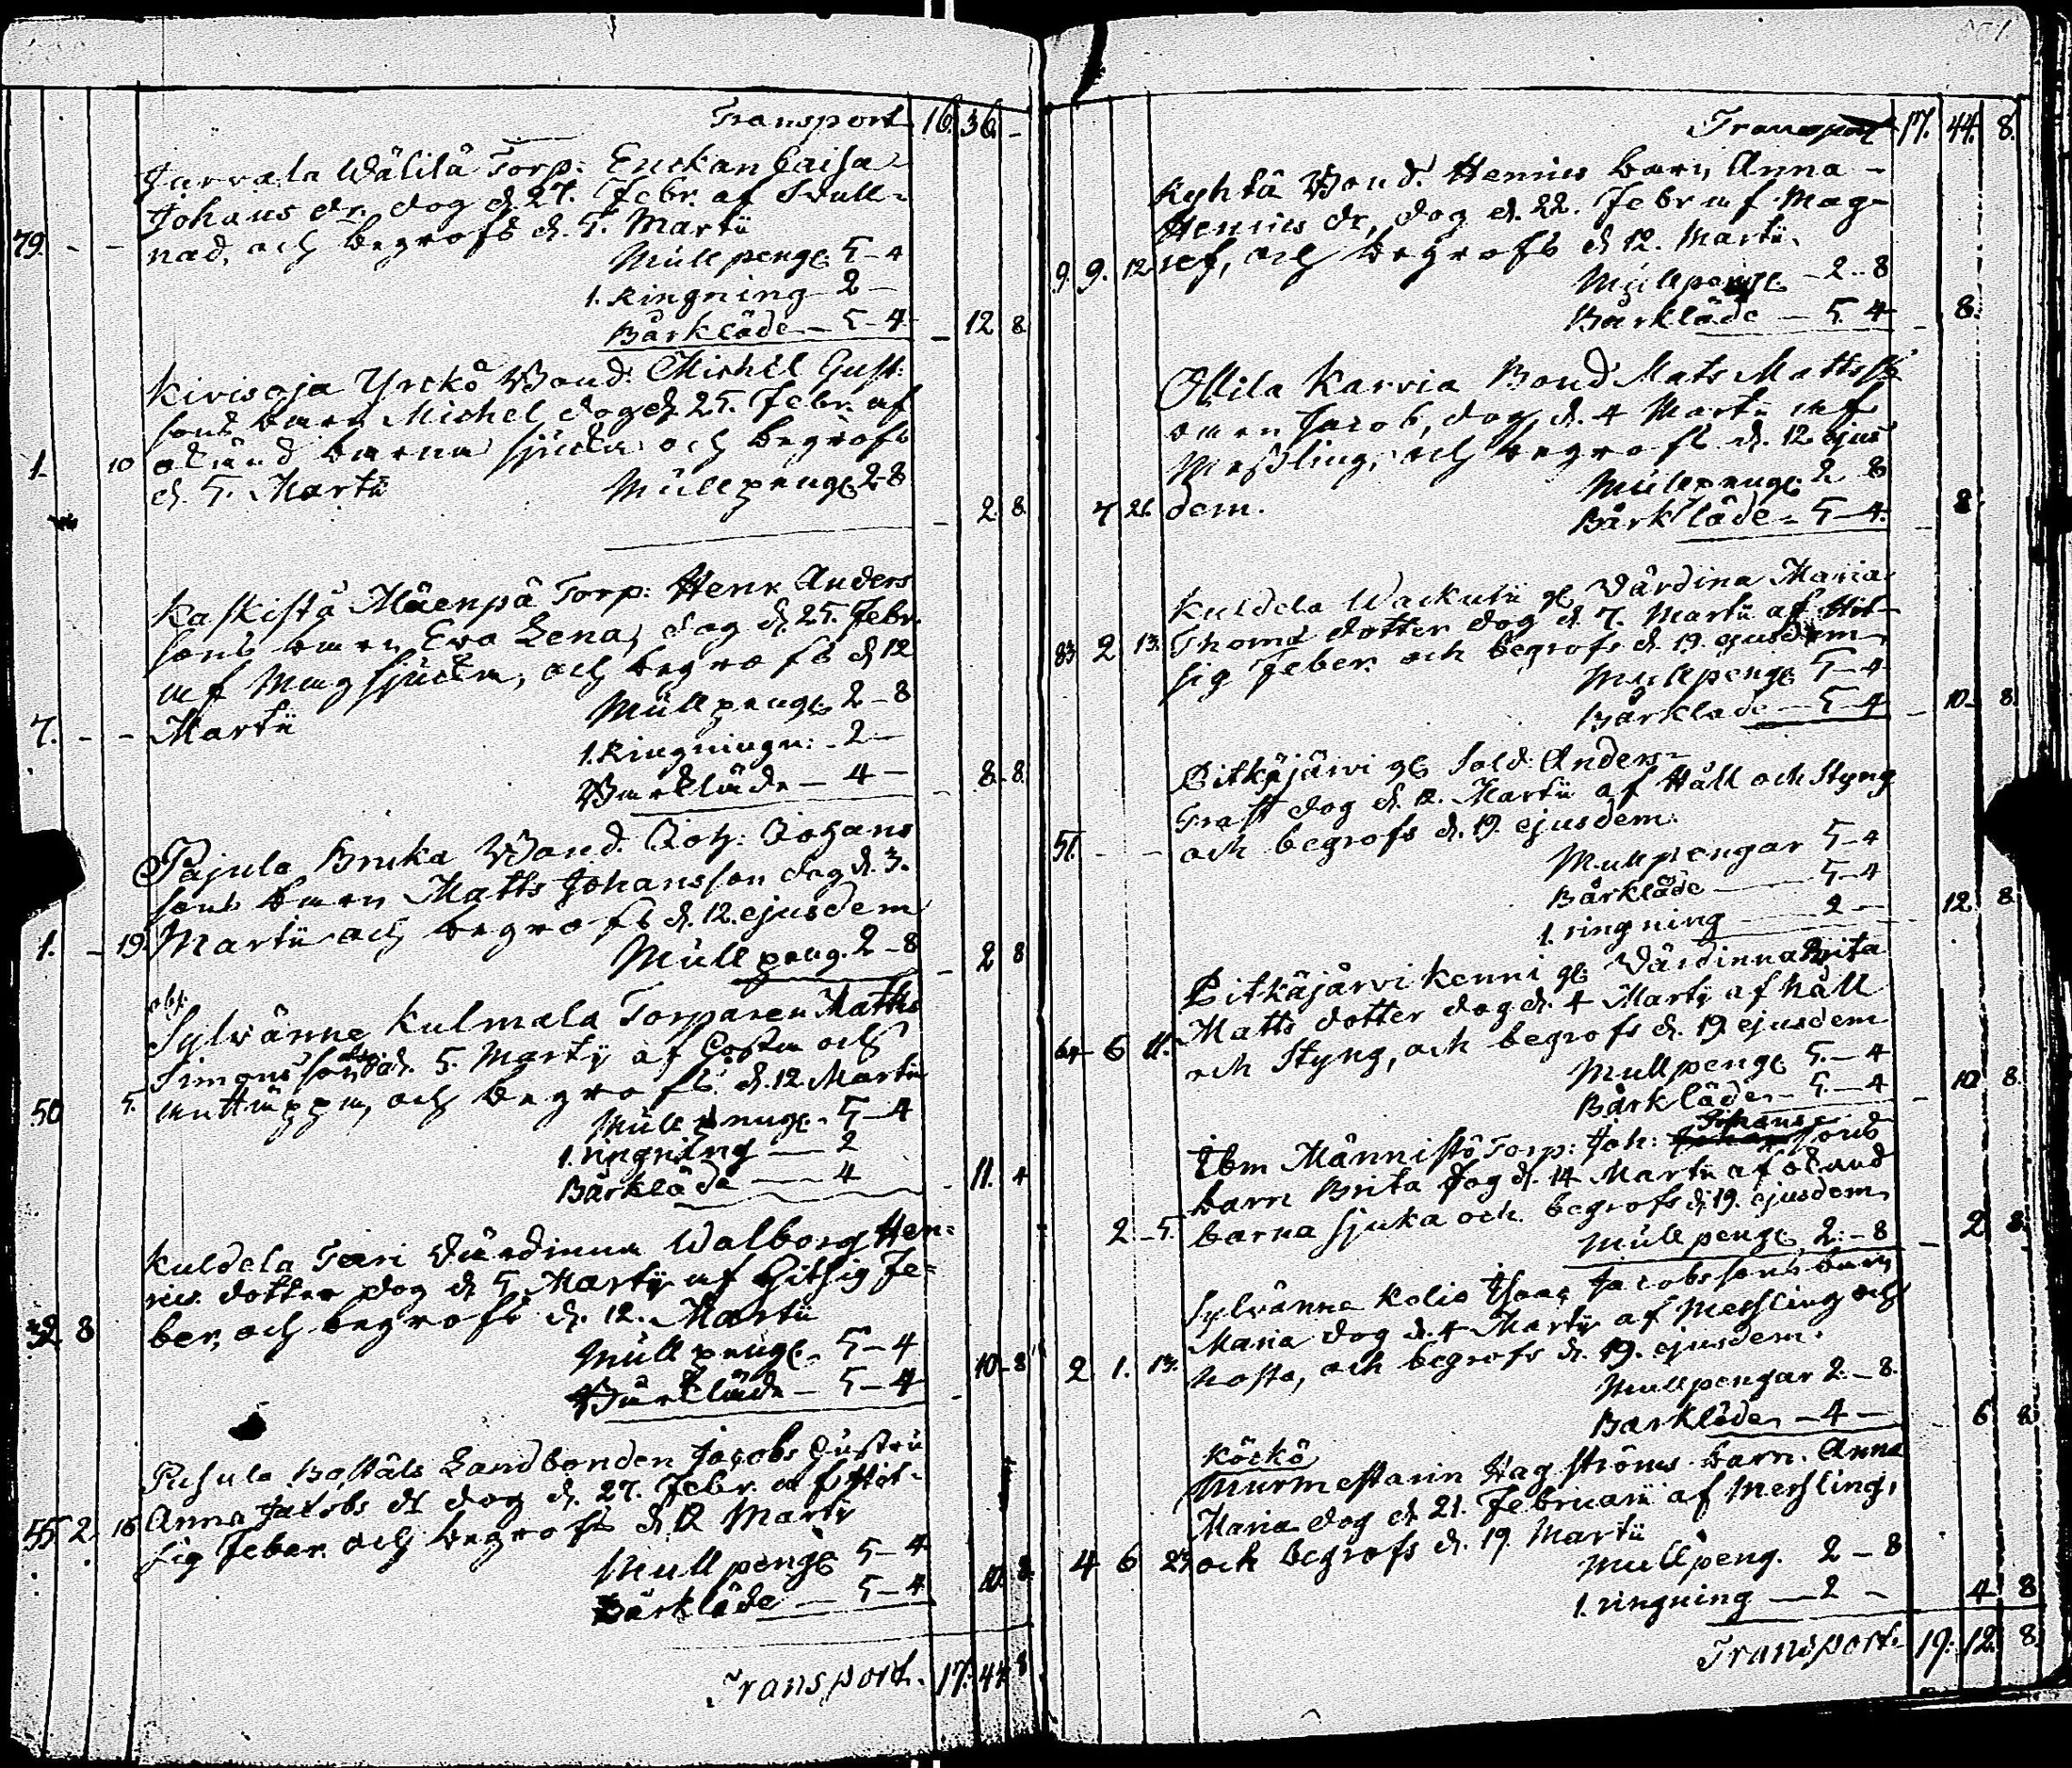 Transport 16. 36. -
Jarvala Wälilä Torp: Enckan Caisa
Johans dr. dog d. 27. Febr. af Swull-
79. - - nad, och begrofs d. 5. Martii
Mull peng. 5-4
1. Ringning 2 -
Bårkläde - 5-4 - 12 8.
Kivisoja Yrckö Bond. Michel Gust:
sons barn Michel dog d. 25. Febr. af
1. 10 okänd barna sjuka och begrofs
d. 5. Martii Mull peng. 2-8
- 2. 8.
Kaskistå Mäenpä Torp: Henr Anders
sons barn Eva Lena, dog d. 25. Febr.
af Mag sjuka, och begrofs d. 12
7. - - Martii Mull peng. 2-8
1. Ringning: - 2 -
Barkläde - 4 - - 8 - 8.
Pajula Bruka Bond. Joh: Johans
sons barn Matts Johansson dog d. 3.
1. - 19. Martii och begrofs d. 12. ejusdem
Mull peng. 2-8 - 2 8
Sylvänne Kulmala Torparen Matts
Simonsson d. 5. Martii af Hosta och
50 5. mattäppa, och begrofs d. 12 Martii
Mull peng. - 5-4
1. ringning - 2
Bårkläde - 4 - 11. 4
Kuldela Teri Värdinna Walborg Hen-
rics dotter dog d. 5. Martii af Hitsig Fe-
32 8 ber, och begrofs d. 12. Martii
Mull peng. - 5-4
Bårkläde - 5-4 - 10 - 8
Landbonden Jacobs hustru
Anna Jacobs dr dog d. 27. Febr. af Hit-
55 2. 16 sig Feber och begrofs d. 12 Martii
Mull peng. 5-4
Bårkläde - 5-4 10. 8.
Transport. 17. 44. 8
Transport 17. 44. 8.
Kyhtä Bond. Henrics barn Anna -
Henrics dr, dog d. 22. Febr af Mag-
9. 9. 12 ref, och begrofs d. 12. Martii.
Mull peng. - 2 - 8
Bårkläde - 5. 4 - 8.
Ollila Karvia Bond Mats Mattss
barn Jacob, dog d. 4 Martii af
Messling, och begrofs d. 12 ejus
7 26. dem. Mull peng. 2 8
Bårkläde - 5-4. - 8.
Kuldela Wackutii gl. Värdina Maria
83 2 13. Thoms dotter dog d. 7. Martii af Hit-
sig Feber och begrofs d. 19. ejusdem
Mull peng. 5-4
Bårkläde - 5-4 - 10 - 8.
Pitkäjärvi gl. Sold. Anders
Trast dog d. 12. Martii af Håll och Styng
51. - - och begrofs d. 19. ejusdem.
Mullpengar 5-4
Bårkläde - 5-4
1. ringning - 2 - - 12. 8.
Pitkäjärvi Kenni gl. Värdinna Brita
Matts dotter dog d. 4 Martij af håll
64 6 11. och Styng, och begrofs d. 19 ejusdem
Mull peng. 5. - 4
Bårkläde - 5. - 4 - 10 8.
Johans
Ibm Männistö Torp: Joh: sons
barn Brita dog d. 14 Martii af okand
2 - 5. barna sjuka och begrofs d. 19. ejusdem
Mull peng. 2. - 8 - 2 8.
Sylvänne Kolio Isaac Jacobssons barn
Maria dog d. 4 Martii af Messling och
2 1. 13. hosta, och begrofs d. 19. ejusdem.
Mullpengar 2. - 8.
Barkläde - 4 - - 6 8.
Köckö
Murmestarin Hagströms barn. Anna
Maria dog d. 21. Februarii af Messling,
4 6 23 och begrofs d. 19. Martii
Mull peng. 2 - 8
1. ringning - 2 - 4 8
Transport. 19. 12. 8.